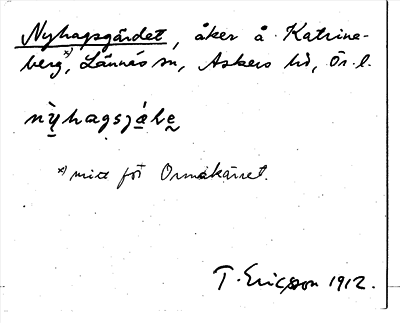 Nyhagsgärdet, åker å Katrine-
berg *), Lännäs sn, Askers hd, Ör. l.
*) mitt för Ormakärret.
T. Ericsson 1912.